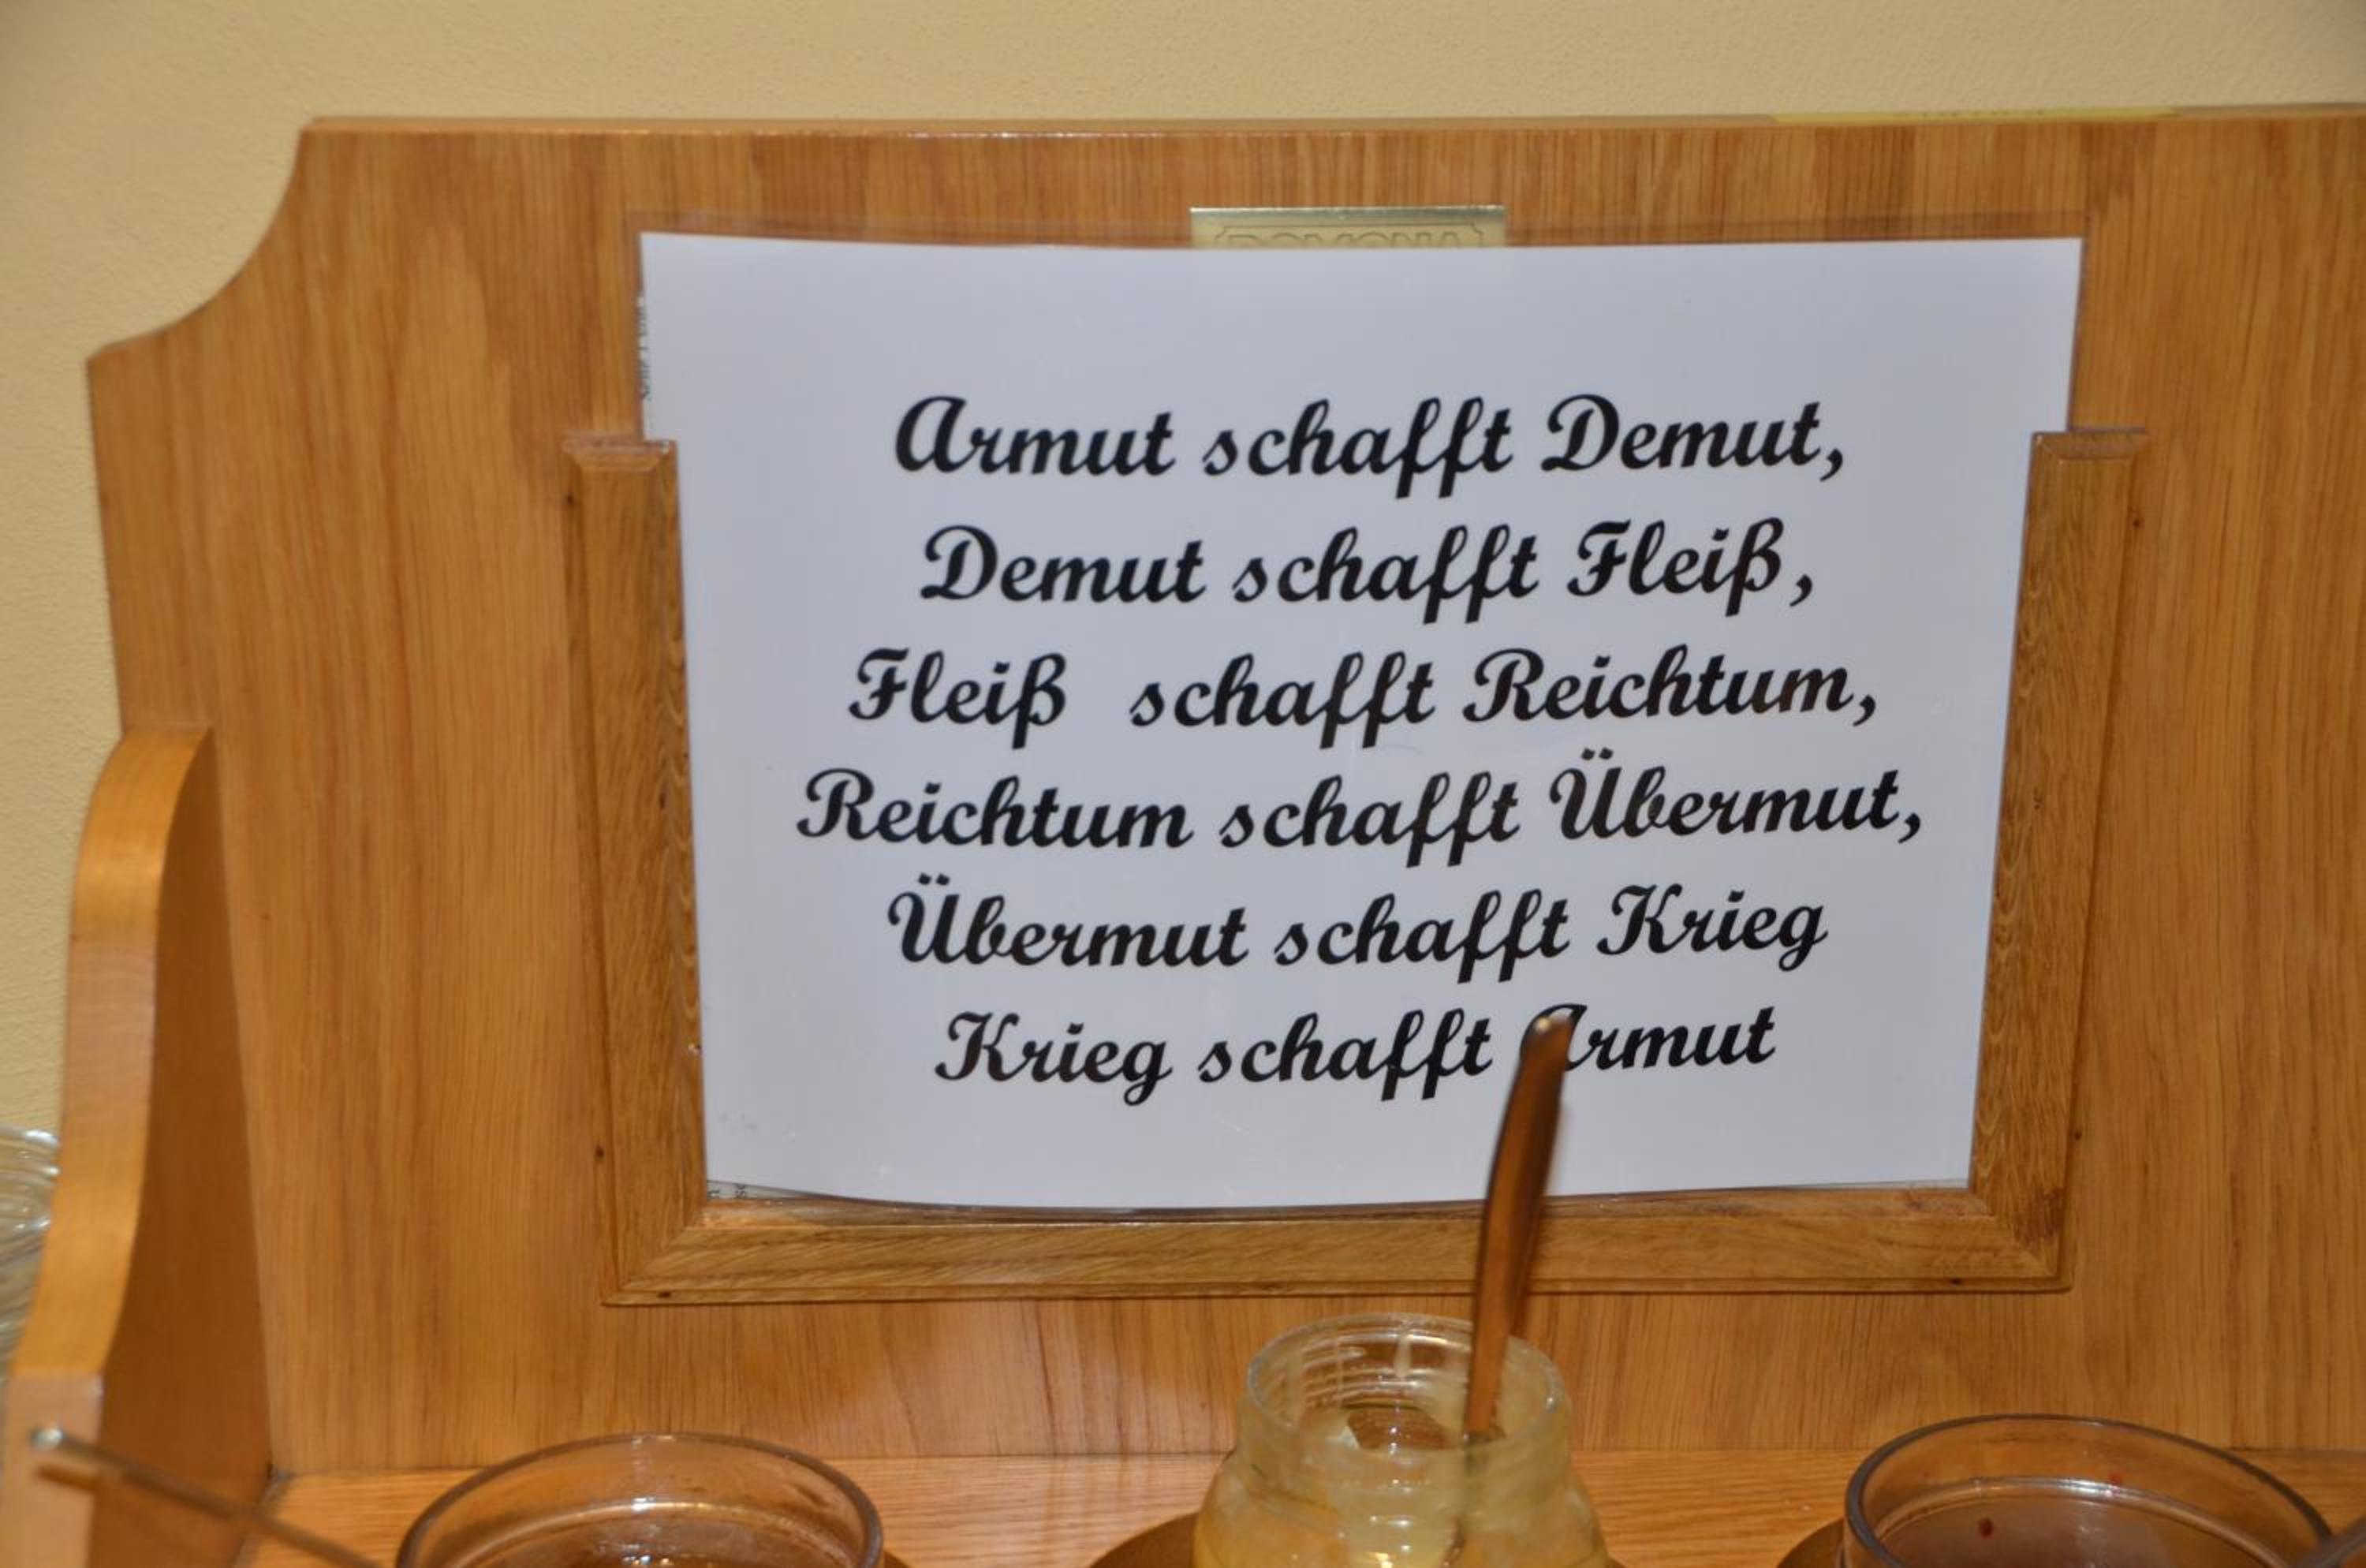 Armut schafft Demut,
Demut schafft Fleiß,
Fleiß schafft Reichtum,
Reichtum schafft Übermut,
Übermut schafft Krieg
Krieg schafft Armut